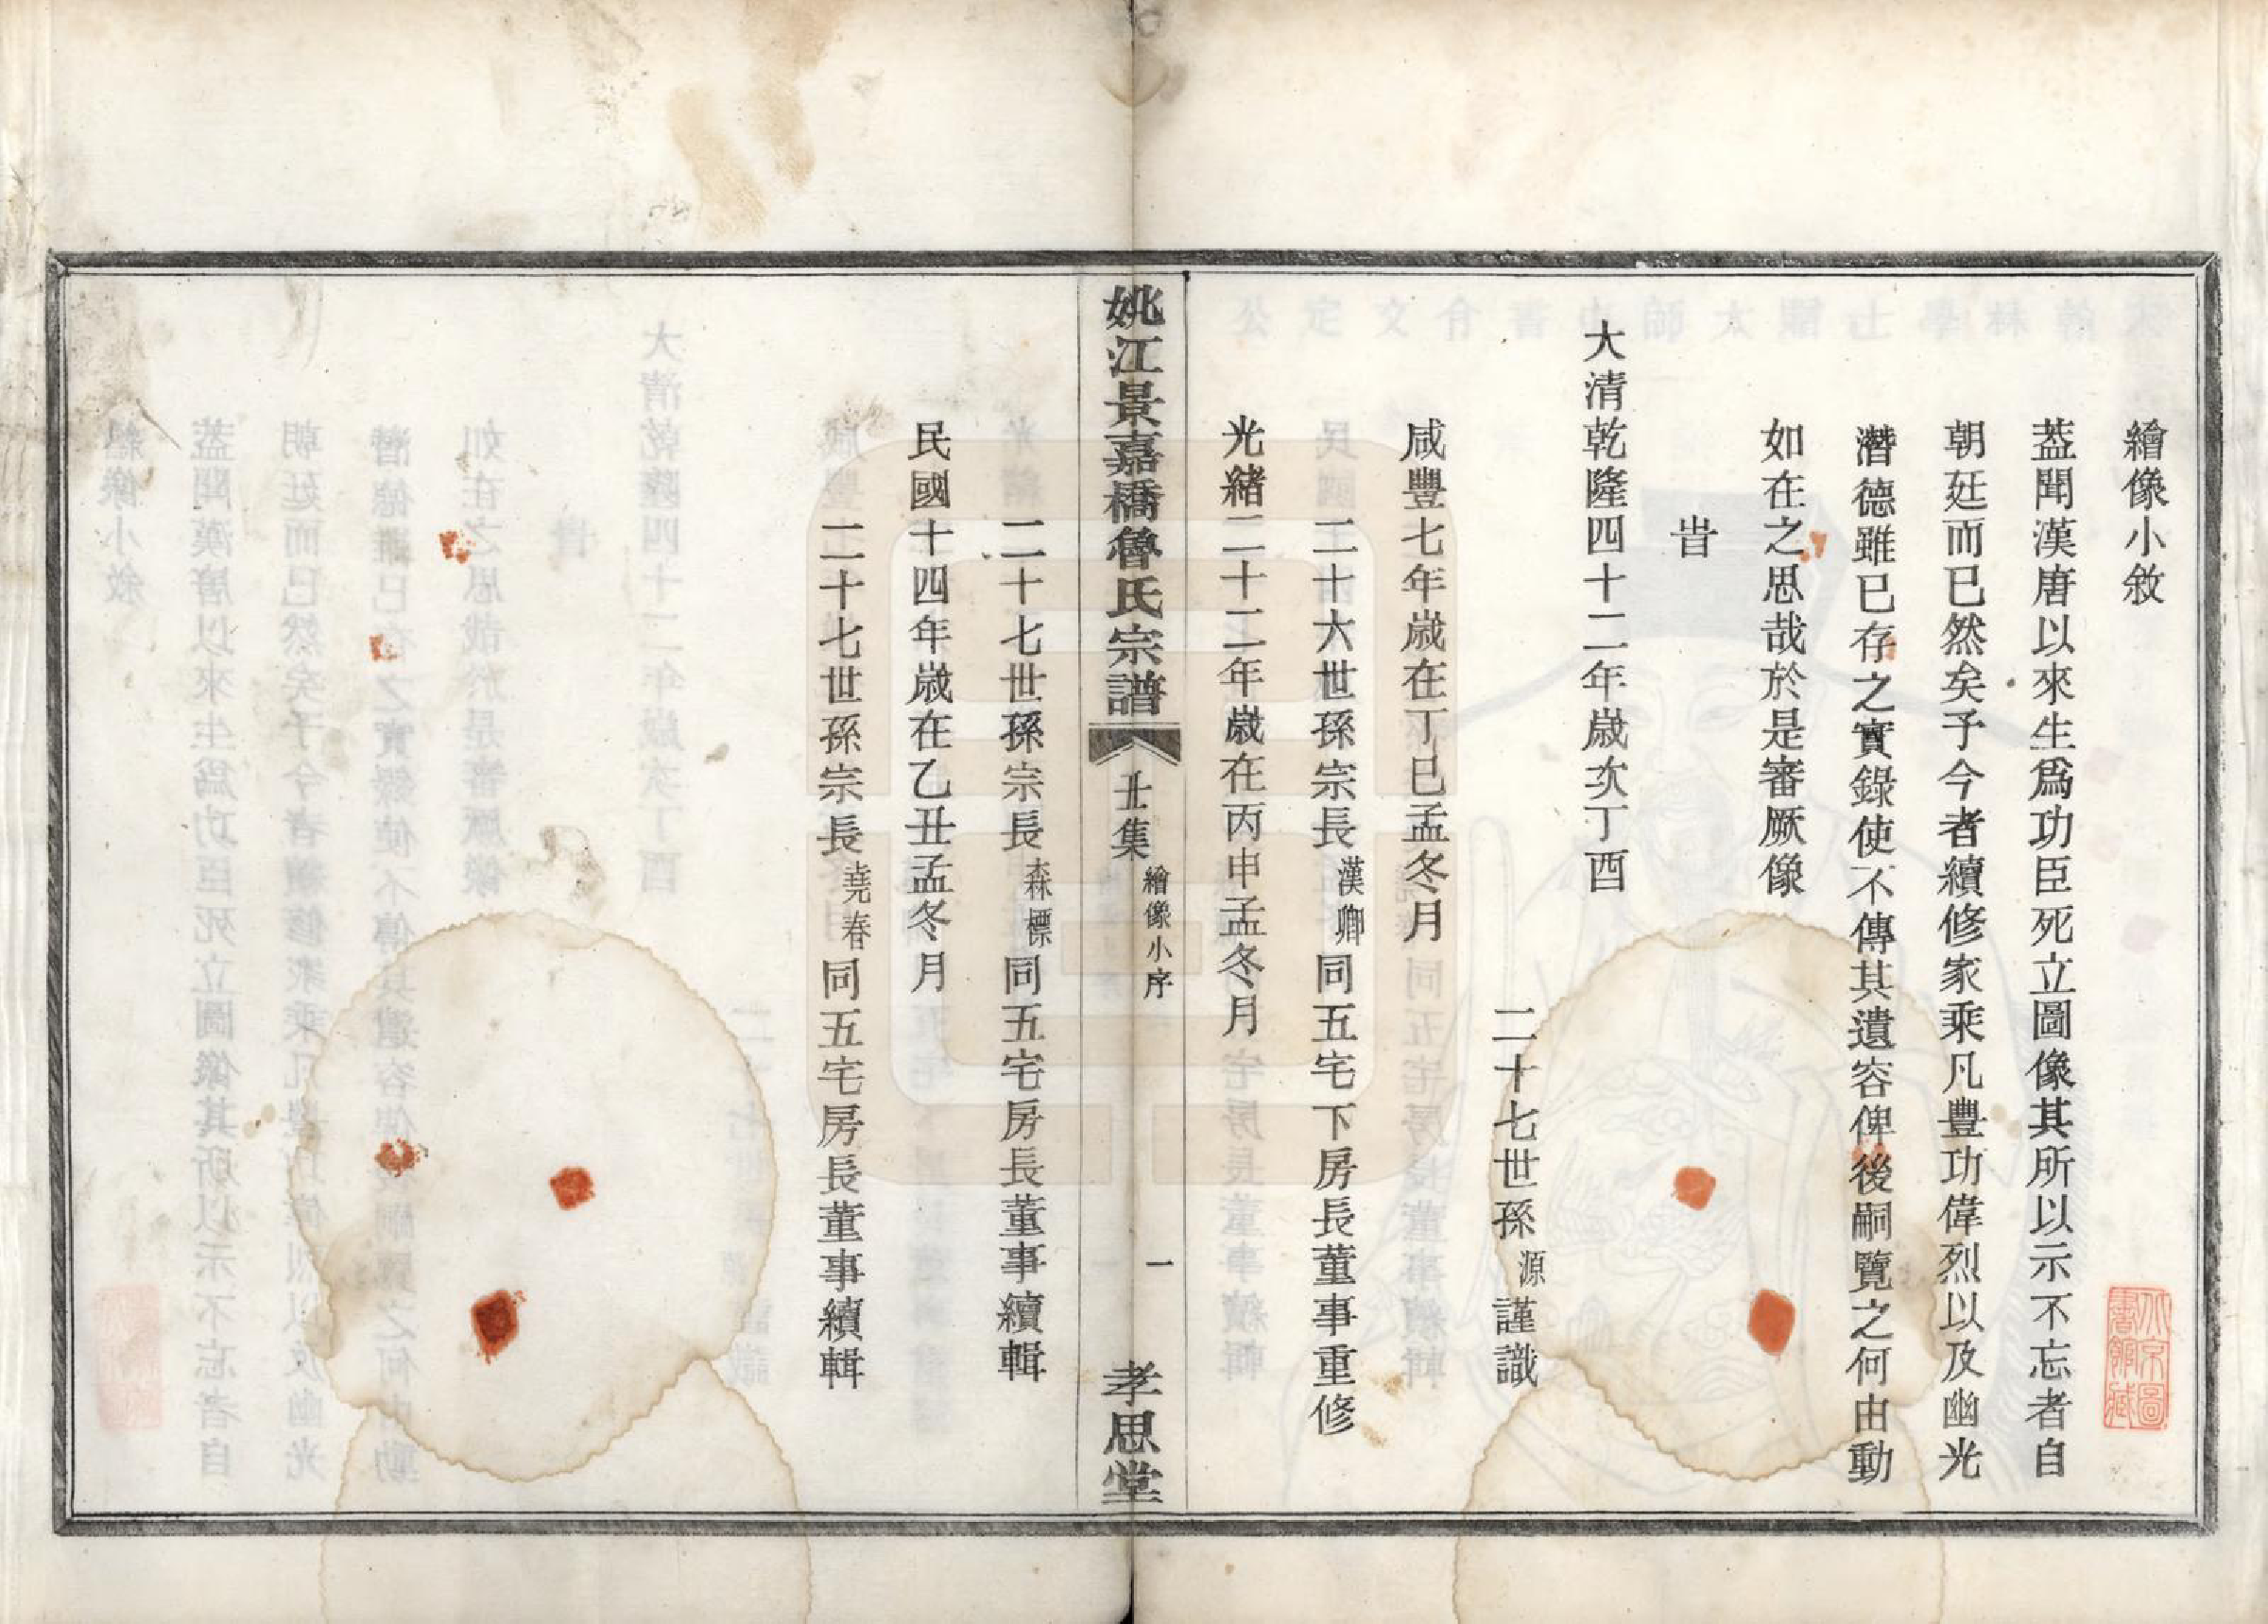 繪像小敘
葢聞漢唐以來生爲功臣死立圖像其所以示不忘者自
朝廷而已然矣予今者續修家乘凡豐功偉烈以及幽光
潛德雖已存之實錄使不傳其遺容俾後嗣覽之何由動
如在之思哉於是審厥像
旹
大清乾隆四十二年歲次丁酉
二十七世孫源謹識
咸豐七年歲在丁巳孟冬月
二十六世孫宗長漢卿同五宅下房長董事重修
光緒二十二年歲在丙申孟冬月
姚江景嘉橋魯氏宗譜 集 繪像小序 一 孝思堂
二十七世孫宗長森標同五宅房長董事續輯
民國十四年歲在乙丑孟冬月
二十七世孫宗長堯春同五宅房長董事續輯
北京圖書館藏